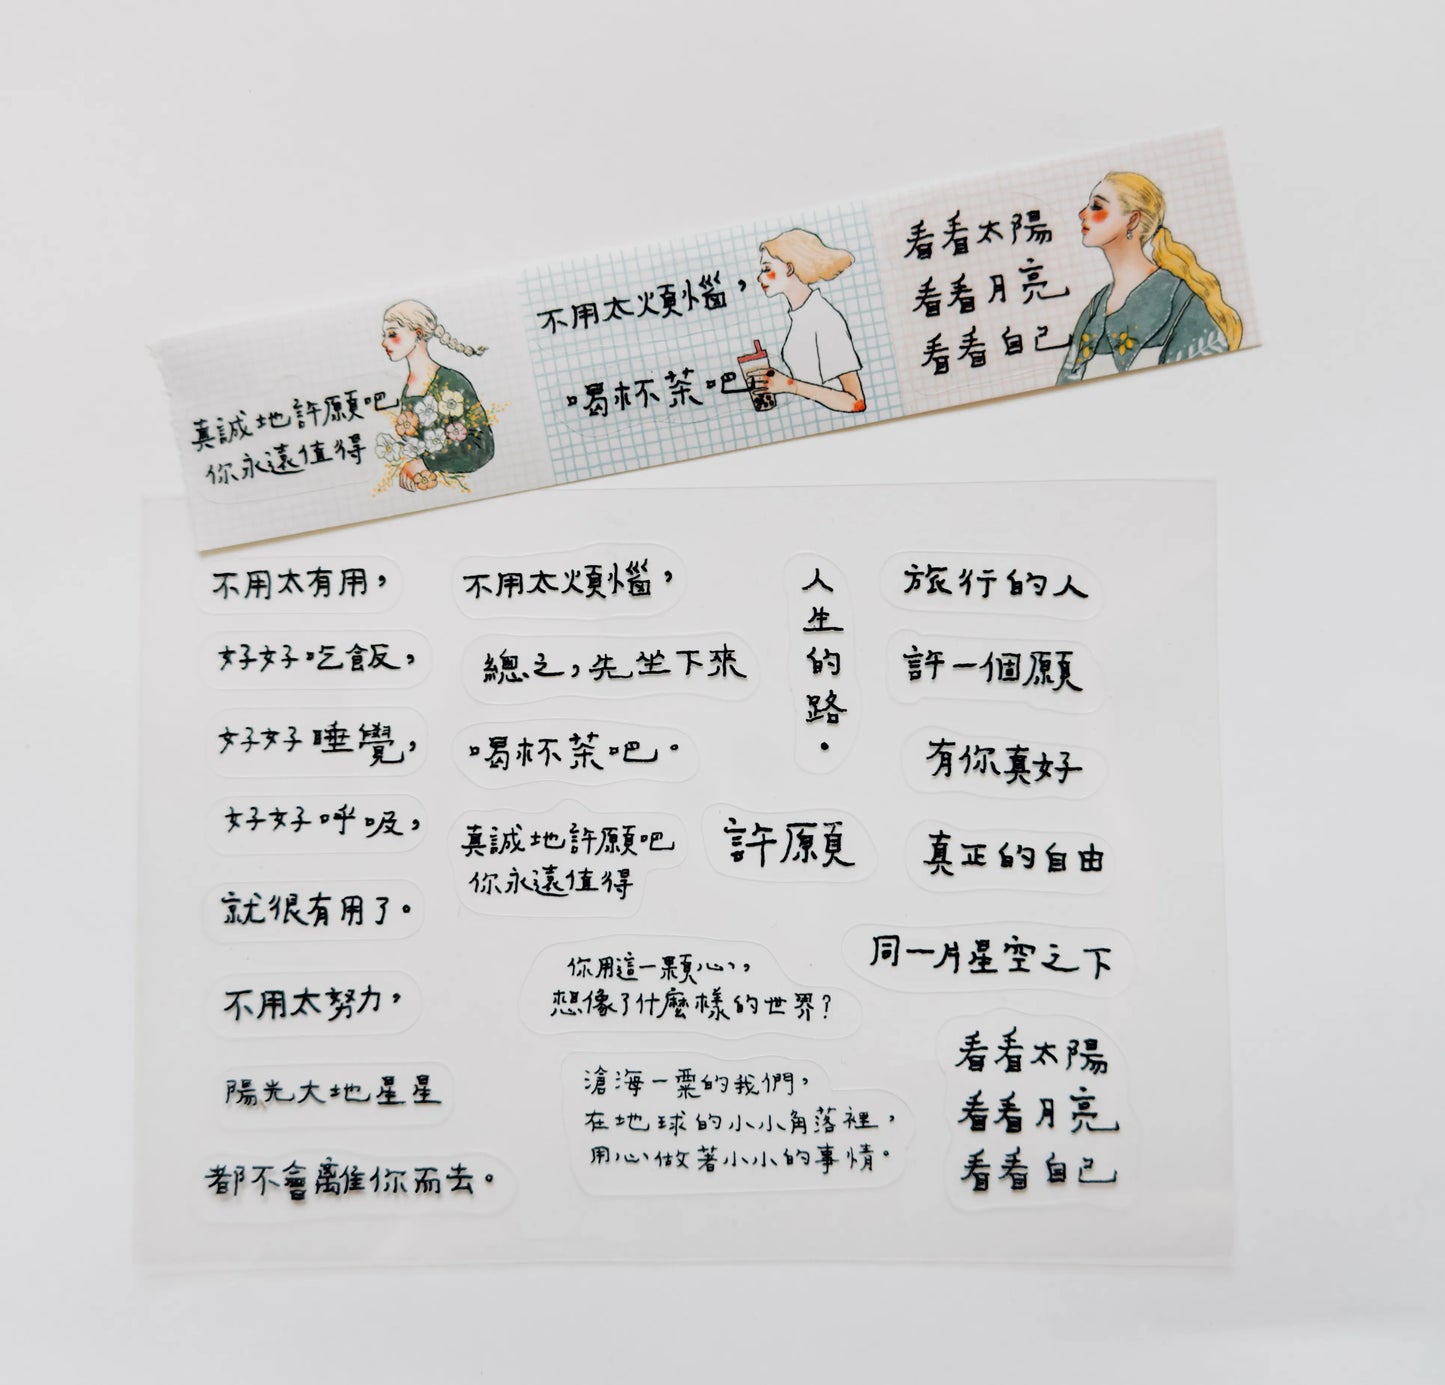 真誠地許願吧
你永遠值得
不用太煩惱，
喝杯茶吧
看看太陽
看看月亮
看看自己
不用太有用，
好好吃飯，
好好睡覺，
好好呼吸，
就很有用了。
不用太努力，
陽光大地星星
都不會離你而去。
不用太煩惱，
總之，先坐下來
喝杯茶吧。
真誠地許願吧
你永遠值得
許願
人生的路。
你用這一顆心，
想像了什麼樣的世界？
滄海一粟的我們，
在地球的小小角落裡，
用心做著小小的事情。
旅行的人
許一個願
有你真好
真正的自由
同一片星空之下
看看太陽
看看月亮
看看自己